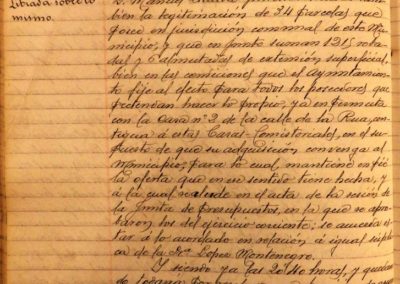 librada sobre lo
mismo.
bien la legitimación de 34 parcelas que
posee en jurisdicción comunal de este Mu-
nicipio, y que en junto suman 1215 roba-
das y 6 almutadas de extensión superficial,
bien en las condiciones que el ayuntamien-
to fije al efecto para todos los poseedores que
pretendan hacer lo propio, ya en permuta
con la Casa nº 2 de la calle de la Rua, con-
tigua á estas Casas-Consistoriales, en el su-
puesto de que su adquisición convenga al
Municipio, para lo cual, mantiene en pie
la oferta que en ese sentido tiene hecha, y
á la cual se alude en el acta de la sesión de
la Junta de Presupuestos, en la que se apro-
baron los del ejercicio corriente; se acuerda
estar á lo acordado en relación á igual súpli-
ca de la Sra. López Montenegro.
Y siendo ya las 20 horas, y